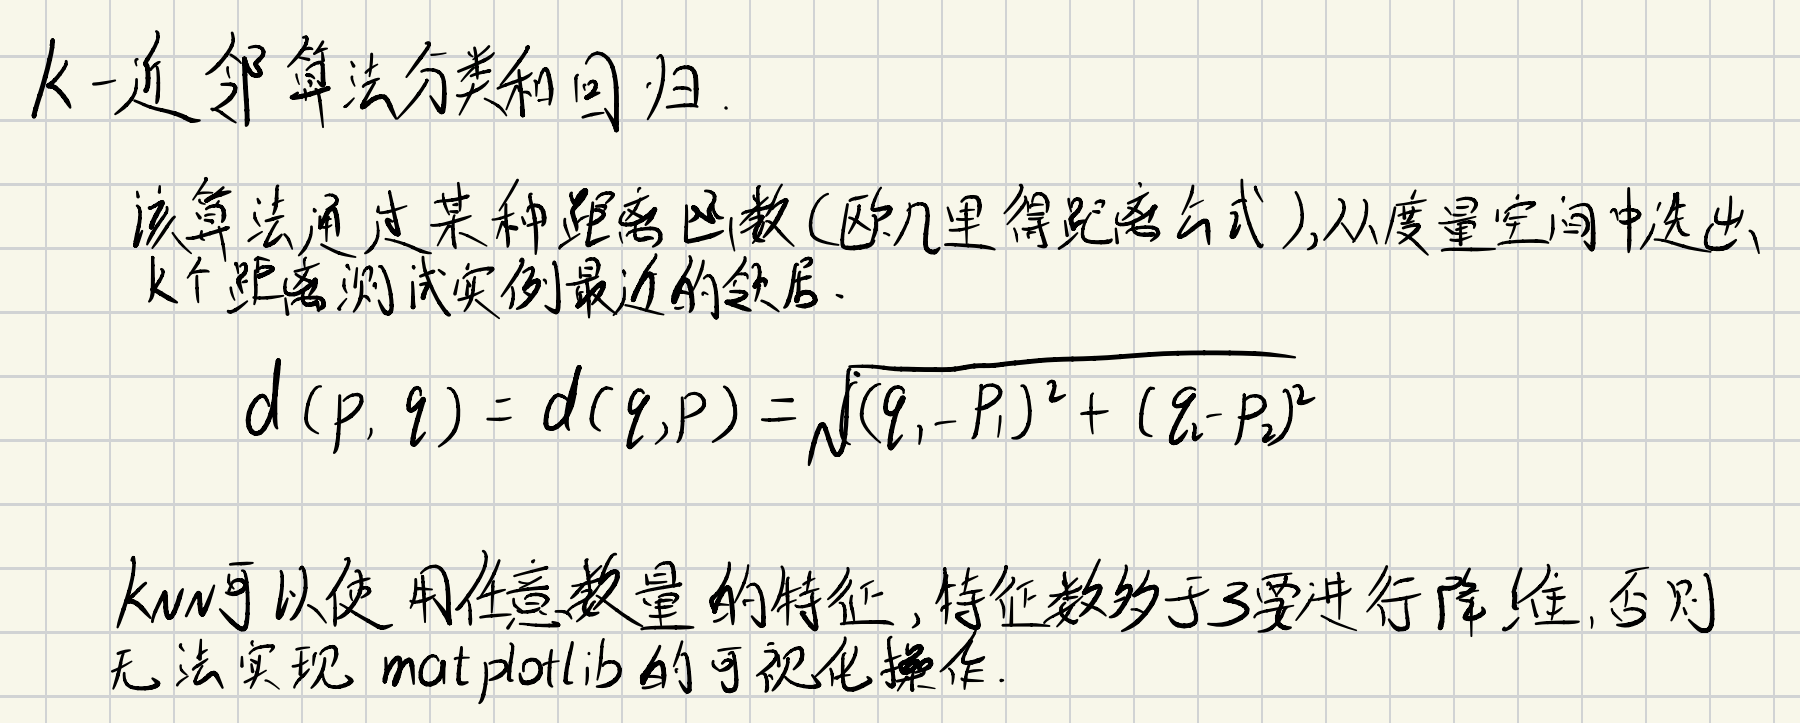 K-近邻算法分类和回归.
该算法通过某种距离函数(欧几里得距离公式),从度量空间中选出
K个距离测试实例最近的领居.
d(p, q) = d(q,p) = √(q₁-p₁)² + (q₂-p₂)²
KNN可以使用任意数量的特征,特征数多于3要进行降维,否则
无法实现 matplotlib的可视化操作.